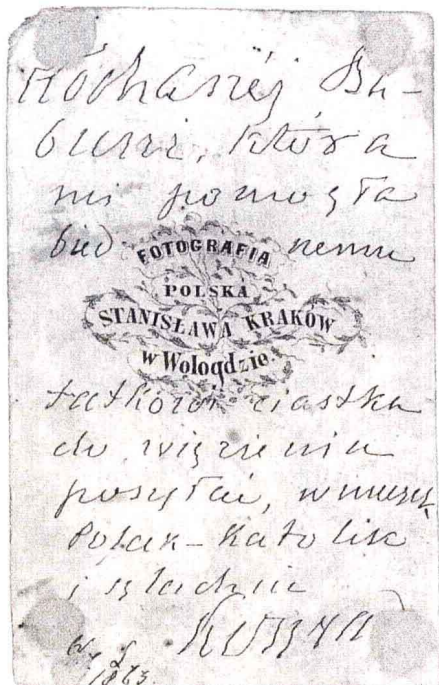 Kochanej Bu-
buni, która
mi pomogła
bied nemu
FOTOGRAFIA
POLSKA
STANISŁAWA KRAKÓW
w Wologdzie
tatkowi ciastka
do więzienia
posyłać, wnuczek
Polak-Katolik
i szlachcic
1863.